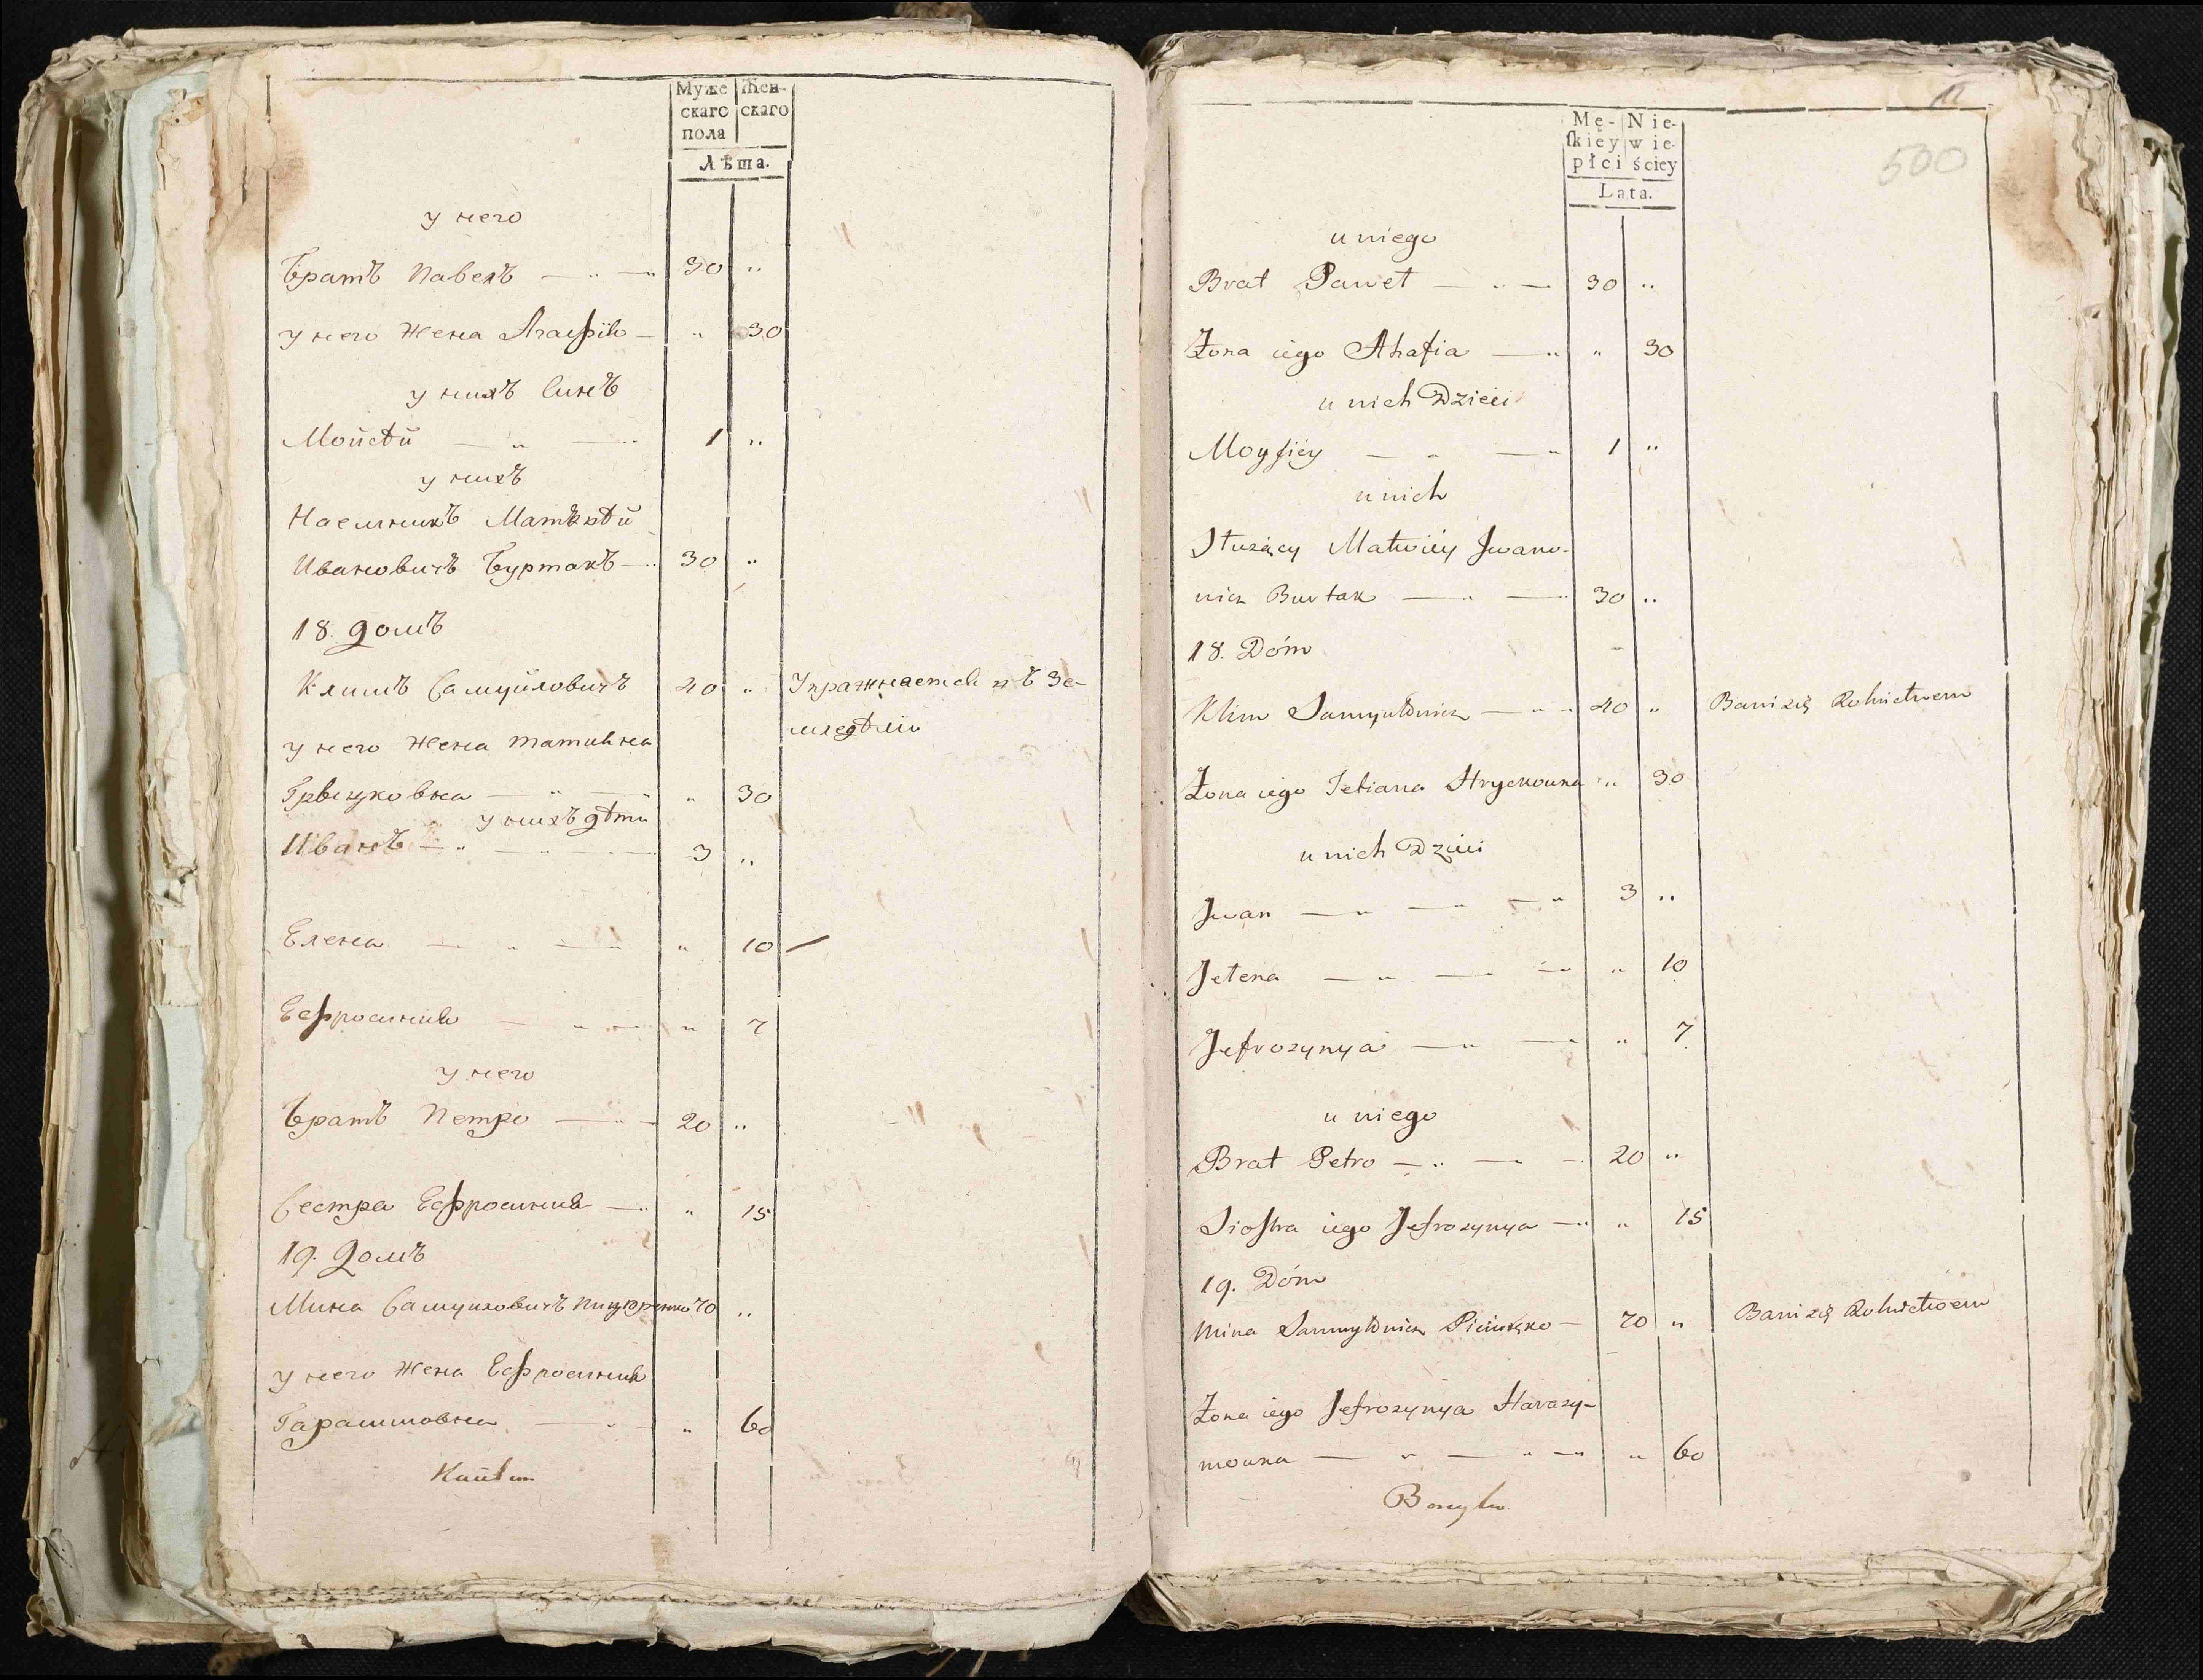 Муже
скаго
пола
Жен-
скаго
Лѣта.
у него
Братъ Павелъ — " — 30 "
у него жена Агафія — " 30
у нихъ Синъ
Мойсѣй — " — 1 "
у нихъ
Наемникъ Матвѣй
Ивановичъ Буртакъ — 30 "
18. домъ
Климъ Самуйловичъ 40 " Упражняется въ Зе-
у него жена Татияна
мледѣліи
Грыцковна — " — " 30
у нихъ дѣти
Иванъ — " — 3 "
Елена — " — " 10
Ефросинія — " — " 7
у него
Братъ Петро — " — 20 "
Сестра Ефросинія — " 15
19. Домъ
Мина Самуиловичъ 70 "
у него жена Ефросинія
Гарасимовна — " 60
Mę-
skiey
płci
Nie-
wie-
ściey
Lata.
500
u niego
Brat Paweł — " — 30 "
Żona iego Ahafia — " " 30
u nich Dzieci
Moysiey — " — " 1 "
u nich
Służący Matwiey Iwano-
wicz Burtak — " — 30 "
18. Dóm
Klim Samyułowicz — " 40 " Bawi się Rolnictwem
Żona iego Tetiana Hryckowna " 30
u nich Dzieci
Iwan — " — " — " 3 "
Jelena — " — " — " 10
Jefrozynya — " — " " 7
u niego
Brat Petro — " — 20 "
Siostra iego Jefrozynya — " " 15
19. Dóm
Mina Samuyłowicz — 70 " Bawi się Rolnictwem
Żona iego Jefrozynya Harazy-
mowna — " — " — " 60